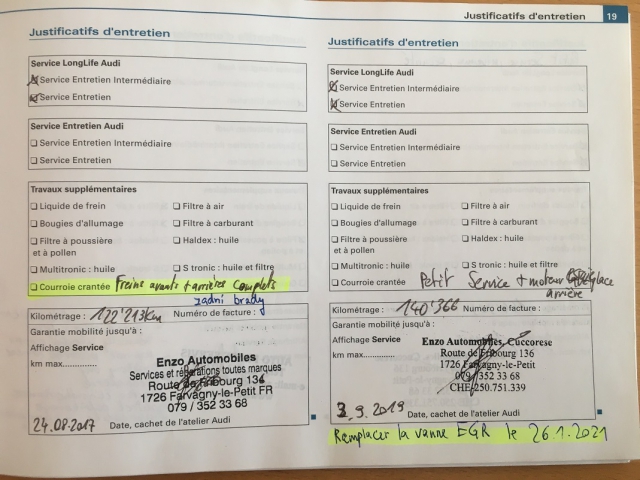 Justificatifs d'entretien 19
Justificatifs d'entretien
Service LongLife Audi
Service Entretien Intermédiaire
Service Entretien
Service Entretien Audi
Service Entretien Intermédiaire
Service Entretien
Travaux supplémentaires
Liquide de frein
Filtre à air
Bougies d'allumage
Filtre à carburant
Filtre à poussière
et à pollen
Haldex : huile
Multitronic : huile
S tronic : huile et filtre
Courroie crantée Freins avants + arrières complets
zadní brzdy
Kilométrage : 122'213km Numéro de facture :
Garantie mobilité jusqu'à :
Affichage Service
km max..............
Enzo Automobiles
Services et réparations toutes marques
Route de Fribourg 136
1726 Farvagny-le-Petit FR
079 / 352 33 68
24.08.2017 Date, cachet de l'atelier Audi
Justificatifs d'entretien
Service LongLife Audi
Service Entretien Intermédiaire
Service Entretien
Service Entretien Audi
Service Entretien Intermédiaire
Service Entretien
Travaux supplémentaires
Liquide de frein
Filtre à air
Bougies d'allumage
Filtre à carburant
Filtre à poussière
et à pollen
Haldex : huile
Multitronic : huile
S tronic : huile et filtre
Courroie crantée Petit Service + moteur
arrière
Kilométrage : 140'366 Numéro de facture :
Garantie mobilité jusqu'à :
Affichage Service
km max..............
Enzo Automobiles, Cuccorese
Route de Fribourg 136
1726 Farvagny-le-Petit
079/352 33 68
CHE-250.751.339
3.9.2019 Date, cachet de l'atelier Audi
Remplacer la vanne EGR le 26.1.2021